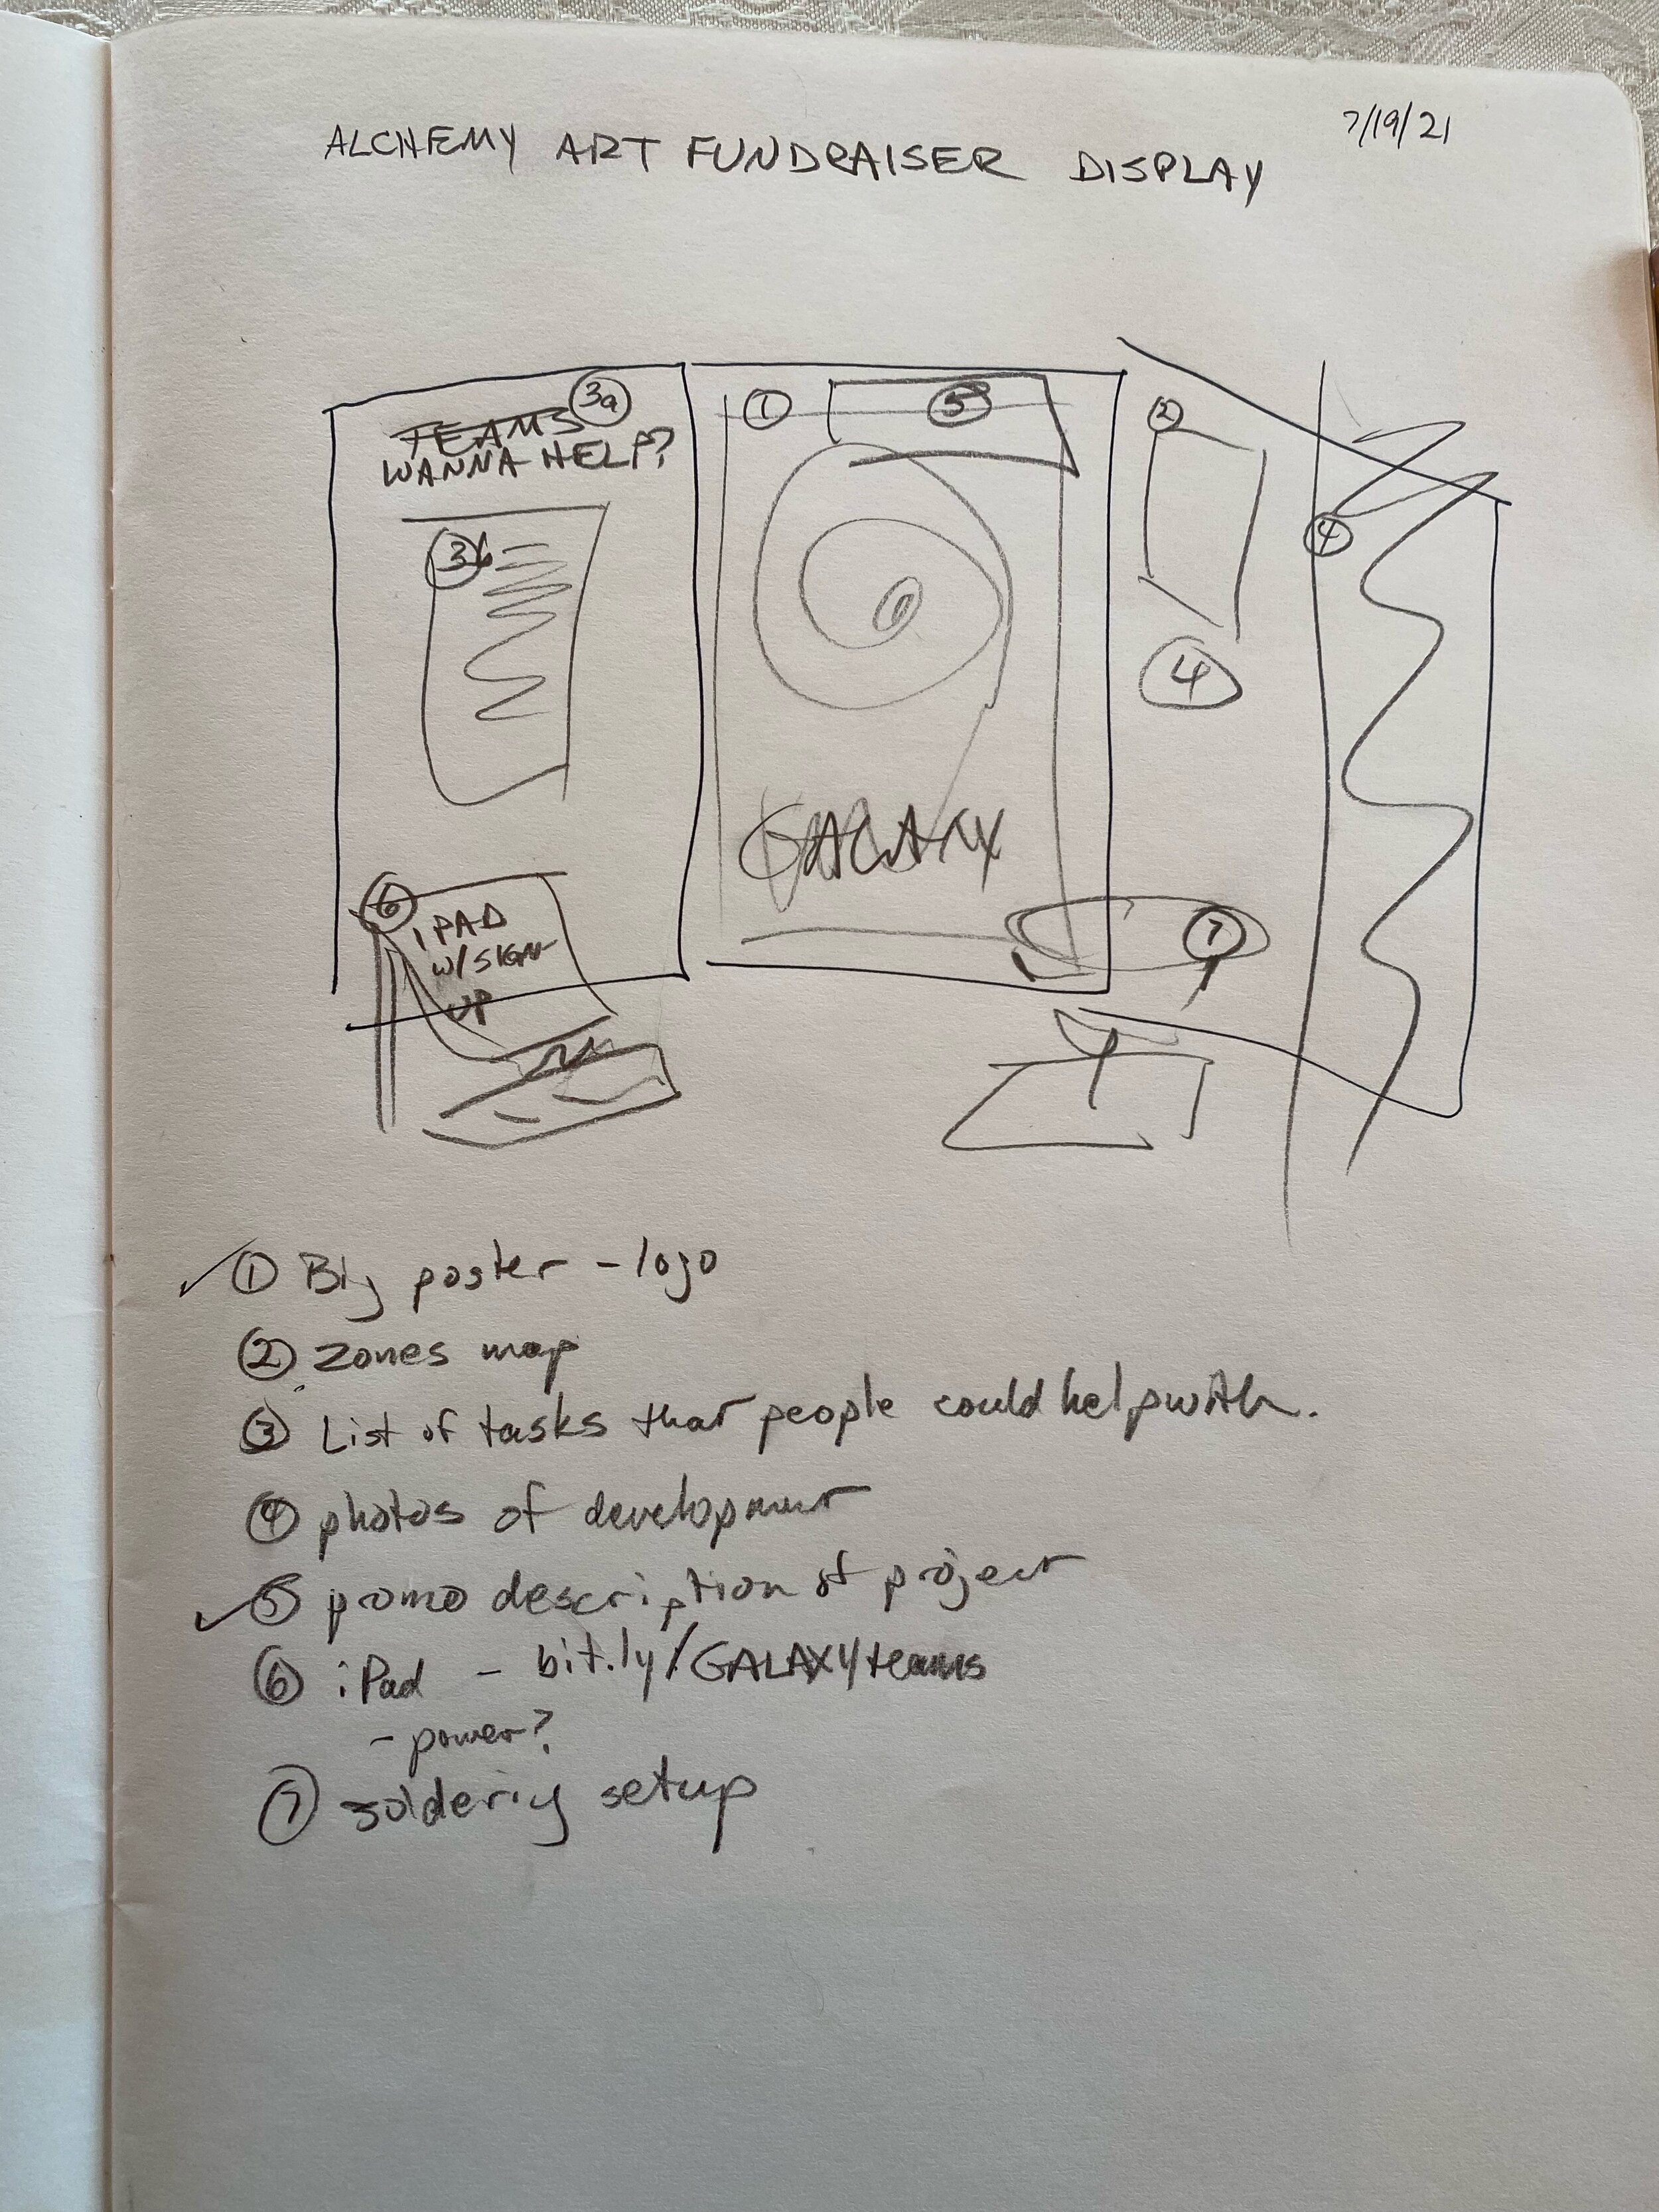 7/19/21
ALCHEMY ART FUNDRAISER DISPLAY
3a
TEAMS
WANNA HELP?
3b
1
5
2
4
4
GALAXY
6
iPAD
W/SIGN
UP
7
✓ 1 Big poster - logo
2 zones map
3 List of tasks that people could help with.
4 photos of development
✓ 5 promo description of project
6 iPad - bit.ly/GALAXYteams
- power?
7 soldering setup